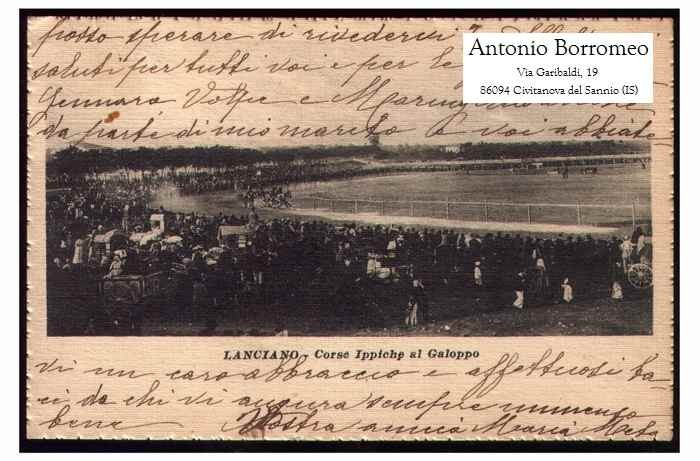 posso sperare di rivedervi?
saluti per tutti voi e per le
Gennaro Volpe e
da parte di mio marito e voi abbiate
Antonio Borromeo
Via Garibaldi, 19
86094 Civitanova del Sannio (IS)
LANCIANO - Corse Ippiche al Galoppo
vi un caro abbraccio e affettuosi ba-
ci da chi vi augura sempre immenso
bene Vostra amica Maria